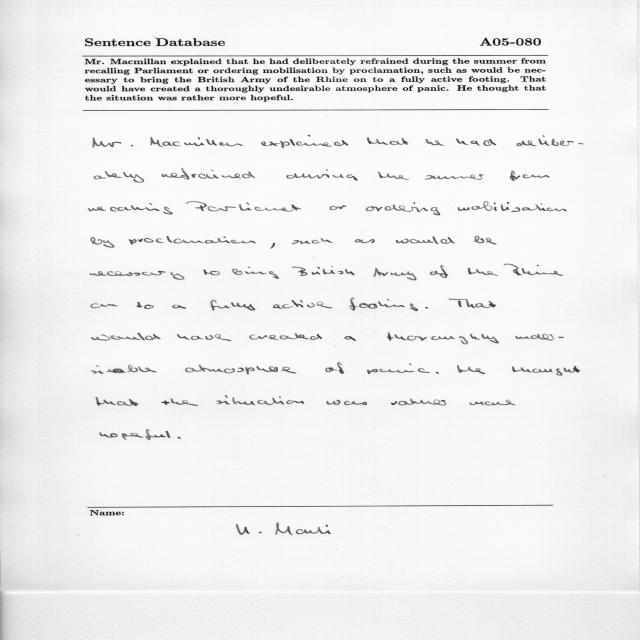 Sentence Database A05-080
Mr. Macmillan explained that he had deliberately refrained during the summer from
recalling Parliament or ordering mobilisation by proclamation, such as would be nec-
essary to bring the British Army of the Rhine on to a fully active footing. That
would have created a thoroughly undesirable atmosphere of panic. He thought that
the situation was rather more hopeful.
Mr. Macmillan explained that he had deliber-
ately refrained during the summer from
recalling Parliament or ordering mobilisation
by proclamation, such as would be
necessary to bring British Army of the Rhine
on to a fully active footing. That
would have created a thoroughly unde-
sirable atmosphere of panic. He thought
that the situation was rather more
hopeful.
Name:
U. Marti